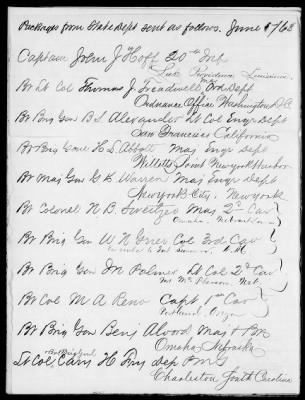 Packages from State Dept sent as follows. June 5/68
Captain John J Hoff 20th Inf
Lake Providence Louisiana.
Bt Lt Col Thomas J. Treadwell Maj Ord Dept
Ordnance Office Washington D.C.
Bt Brig Gen B S. Alexander Lt Col Engr Dept
San Francisco California
Bt Brig Genl H L Abbott Maj Engr Dept
Willetts Point New York Harbor
Bt Maj Gen G K Warren Maj Engr Dept
New York City. New York
Bt Colonel N. B. Sweitzer Maj 2d Cav
Omaha, Nebraska
Bt Brig Gen W N Grier Col 3rd Cav
Bt Brig Gen I N Palmer Lt Col 2d Cav
Ft McPherson Neb.
Bt Col M A Reno Capt 1st Cav
Portland, Oregon
Bt Brig Gen Benj Alvord Maj & PM
Omaha Nebraska
Lt Col. Bvt Brig Genl Cary H Fry Dep PMG
Charleston South Carolina